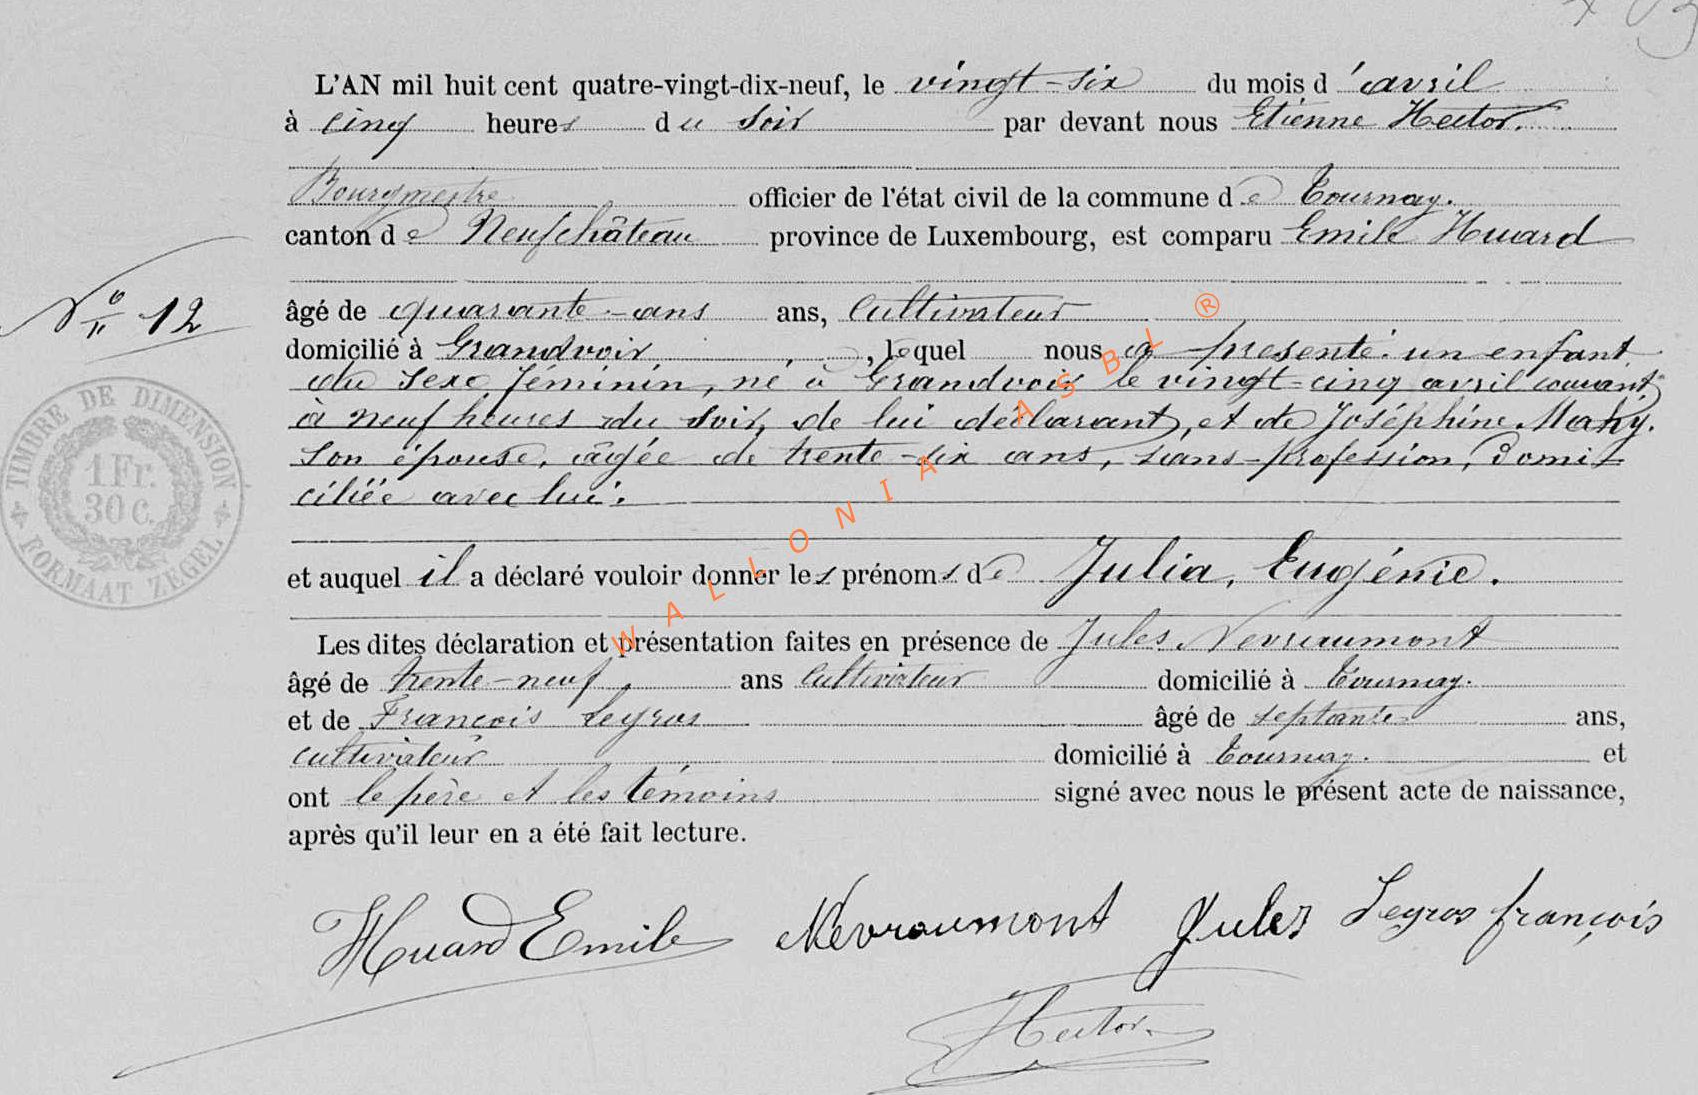 L'AN mil huit cent quatre-vingt-dix-neuf, le vingt-six du mois d'avril
à cinq heures du soir par devant nous Etienne Hector.
Bourgmestre officier de l'état civil de la commune de Tournay.
canton de Neufchâteau province de Luxembourg, est comparu Emile Huard
N° 12
âgé de quarante-ans ans, cultivateur
domicilié à Grandvoir, lequel nous a présenté un enfant
du sexe féminin, né à Grandvoir le vingt-cinq avril courant
à neuf heures du soir, de lui déclarant, et de Joséphine Mahy.
son épouse, âgée de trente-six ans, sans-profession, domi
ciliée avec lui.
et auquel il a déclaré vouloir donner les prénoms de Julia, Eugénie.
Les dites déclaration et présentation faites en présence de Jules Nevraumont
âgé de trente-neuf ans cultivateur domicilié à Tournay.
et de François Legros âgé de septante ans,
cultivateur domicilié à Tournay. et
ont le père et les témoins signé avec nous le présent acte de naissance,
après qu'il leur en a été fait lecture.
Huard Emile Nevraumont Jules Legros françois
Hector
TIMBRE DE DIMENSION
1 Fr.
30 c.
FORMAAT ZEGEL
WALLONIA ASBL ®